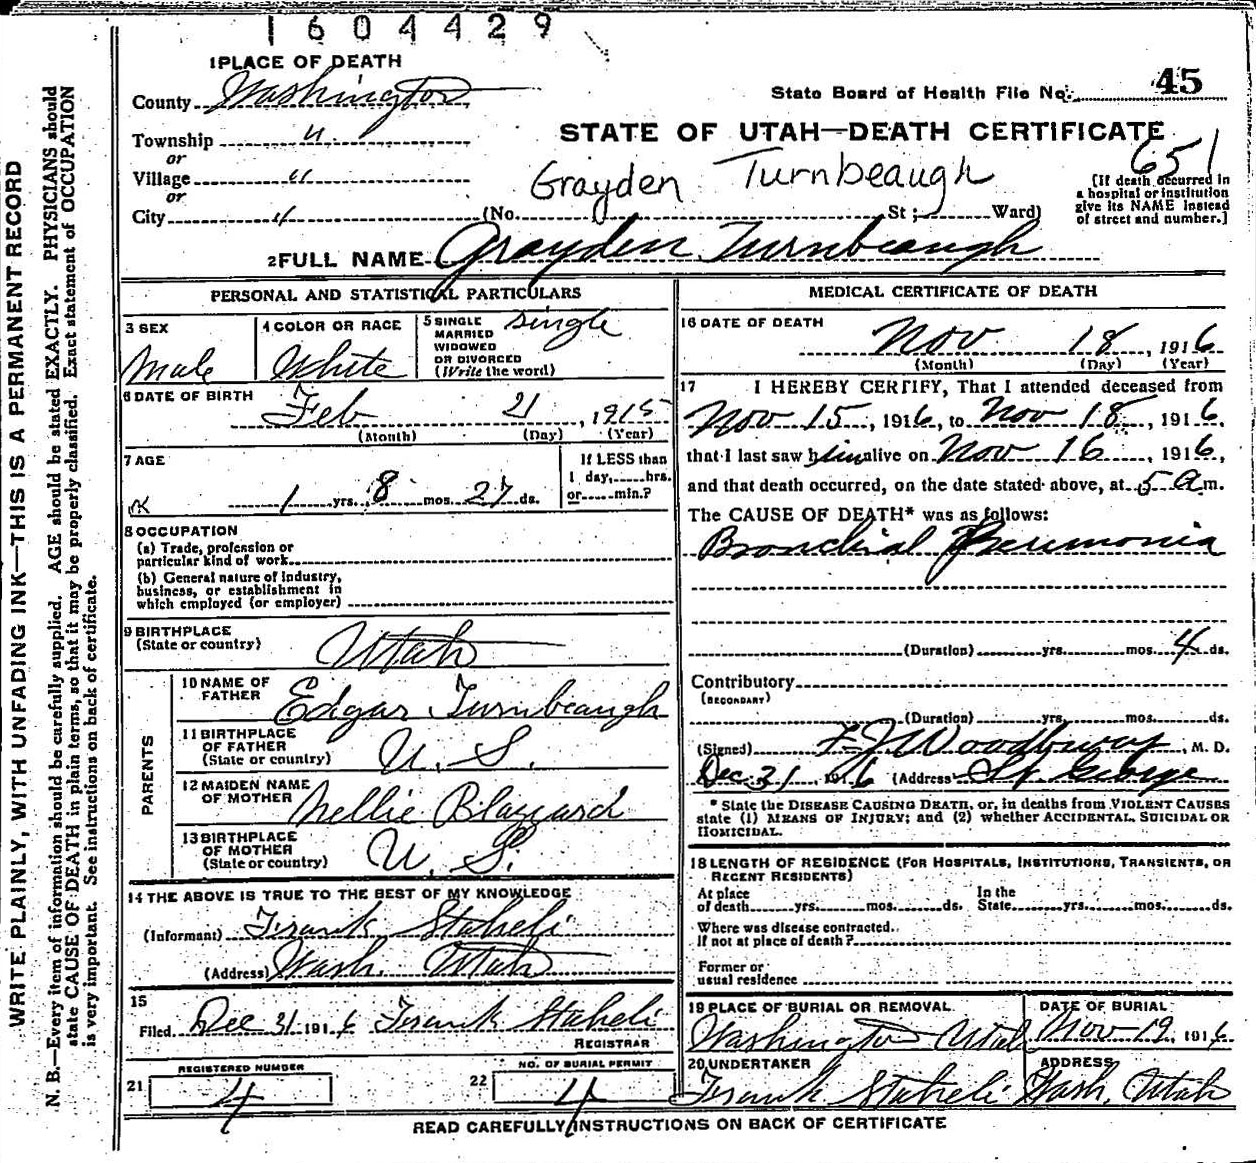 1604429
1 PLACE OF DEATH
County Washington
State Board of Health File No. 45
Township "
or
STATE OF UTAH—DEATH CERTIFICATE
651
Village "
or
Grayden Turnbeaugh
City " (No. St; Ward)
[If death occurred in
a hospital or institution
give its NAME instead
of street and number.]
2 FULL NAME Grayden Turnbeaugh
PERSONAL AND STATISTICAL PARTICULARS
3 SEX
Male
4 COLOR OR RACE
White
5 SINGLE
MARRIED
WIDOWED
OR DIVORCED
(Write the word)
single
6 DATE OF BIRTH
Feb 21, 1915
(Month) (Day) (Year)
7 AGE
If LESS than
1 day, hrs.
or min.?
1 yrs. 8 mos. 27 ds.
8 OCCUPATION
(a) Trade, profession or
particular kind of work
(b) General nature of industry,
business, or establishment in
which employed (or employer)
9 BIRTHPLACE
(State or country)
Utah
PARENTS
10 NAME OF
FATHER
Edgar Turnbeaugh
11 BIRTHPLACE
OF FATHER
(State or country)
U. S.
12 MAIDEN NAME
OF MOTHER
Nellie Blazzard
13 BIRTHPLACE
OF MOTHER
(State or country)
U. S.
14 THE ABOVE IS TRUE TO THE BEST OF MY KNOWLEDGE
(Informant) Frank Staheli
(Address) Wash. Utah
15
Filed Dec 31 1916 Frank Staheli
REGISTRAR
REGISTERED NUMBER
21 4
NO. OF BURIAL PERMIT
22 4
MEDICAL CERTIFICATE OF DEATH
16 DATE OF DEATH
Nov 18, 1916
(Month) (Day) (Year)
17 I HEREBY CERTIFY, That I attended deceased from
Nov 15, 1916, to Nov 18, 1916.
that I last saw him alive on Nov 16, 1916,
and that death occurred, on the date stated above, at 5 a m.
The CAUSE OF DEATH* was as follows:
Bronchial Pneumonia
(Duration) yrs. mos. 4 ds.
Contributory
(SECONDARY)
(Duration) yrs. mos. ds.
(Signed) F J Woodbury, M. D.
Dec. 31, 1916 (Address) St. George
* State the DISEASE CAUSING DEATH, or, in deaths from VIOLENT CAUSES
state (1) MEANS OF INJURY; and (2) whether ACCIDENTAL, SUICIDAL OR
HOMICIDAL.
18 LENGTH OF RESIDENCE (FOR HOSPITALS, INSTITUTIONS, TRANSIENTS, OR
RECENT RESIDENTS)
At place
of death yrs. mos. ds.
In the
State yrs. mos. ds.
Where was disease contracted.
If not at place of death?
Former or
usual residence
19 PLACE OF BURIAL OR REMOVAL
Washington Utah
DATE OF BURIAL
Nov 19, 1916
20 UNDERTAKER
Frank Staheli
ADDRESS
Wash, Utah
READ CAREFULLY INSTRUCTIONS ON BACK OF CERTIFICATE
WRITE PLAINLY, WITH UNFADING INK—THIS IS A PERMANENT RECORD
N. B.—Every item of information should be carefully supplied. AGE should be stated EXACTLY. PHYSICIANS should
state CAUSE OF DEATH in plain terms, so that it may be properly classified. Exact statement of OCCUPATION
is very important. See instructions on back of certificate.